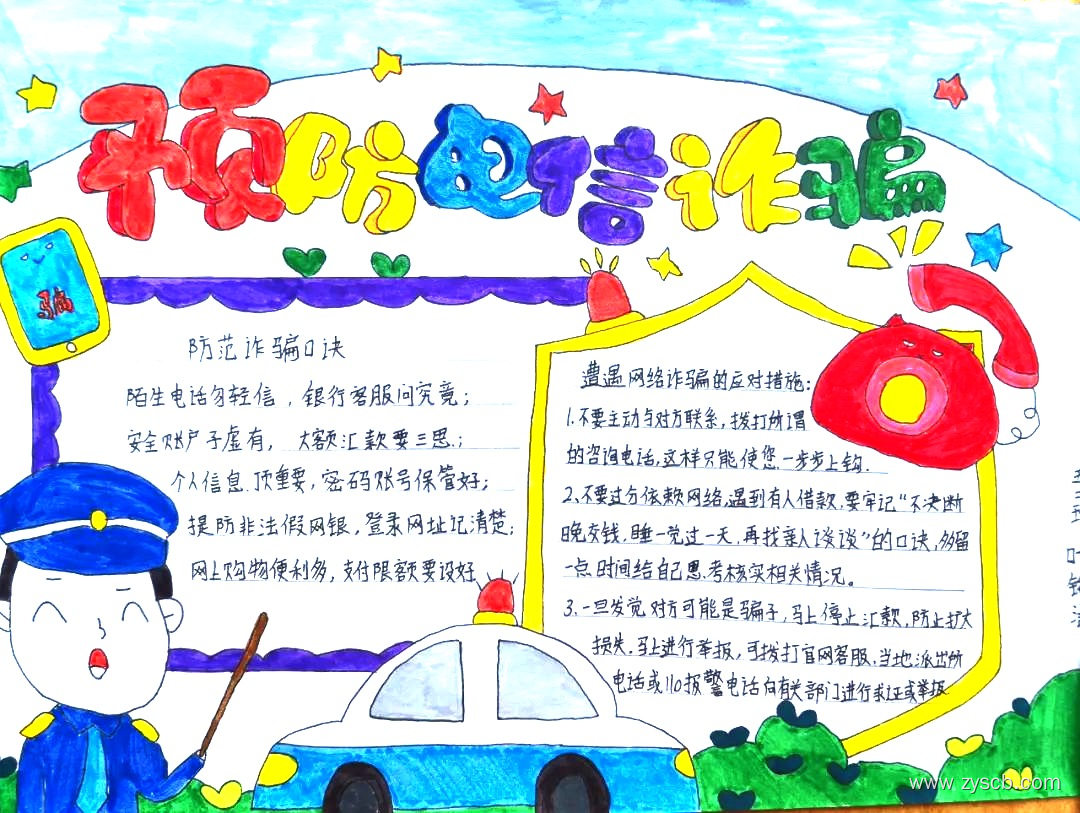 预防电信诈骗
骗
防范诈骗口诀
陌生电话勿轻信，银行客服问究竟；
安全账户子虚有，大额汇款要三思；
个人信息顶重要，密码账号保管好；
提防非法假网银，登录网址记清楚；
网上购物便利多，支付限额要设好
遭遇网络诈骗的应对措施：
1.不要主动与对方联系，拨打所谓
的咨询电话，这样只能使您一步步上钩.
2.不要过分依赖网络，遇到有人借款，要牢记“不决断
晚交钱，睡一觉过一天，再找亲人谈谈”的口诀，多留
一点时间给自己思考核实相关情况。
3.一旦发觉对方可能是骗子，马上停止汇款，防止扩大
损失，马上进行举报，可拨打官网客服，当地派出所
电话或110报警电话向有关部门进行求证或举报
www.zyscb.com